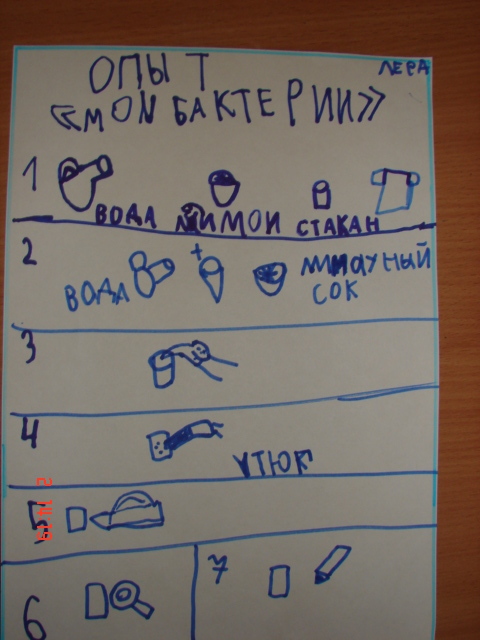 ЛЕРА
ОПЫТ
«МОИ БАКТЕРИИ»
1
ВОДА ЛИМОН СТАКАН
2
ВОДА + СОК
3
4
УТЮГ
5
6
7